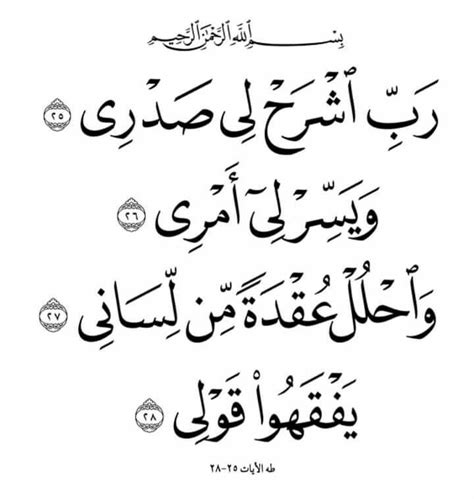 بِسْمِ ٱللَّهِ ٱلرَّحْمَٰنِ ٱلرَّحِيمِ
رَبِّ ٱشْرَحْ لِى صَدْرِى ٢٥
وَيَسِّرْ لِىٓ أَمْرِى ٢٦
وَٱحْلُلْ عُقْدَةً مِّن لِّسَانِى ٢٧
يَفْقَهُوا۟ قَوْلِى ٢٨
طه الآيات ٢٥-٢٨